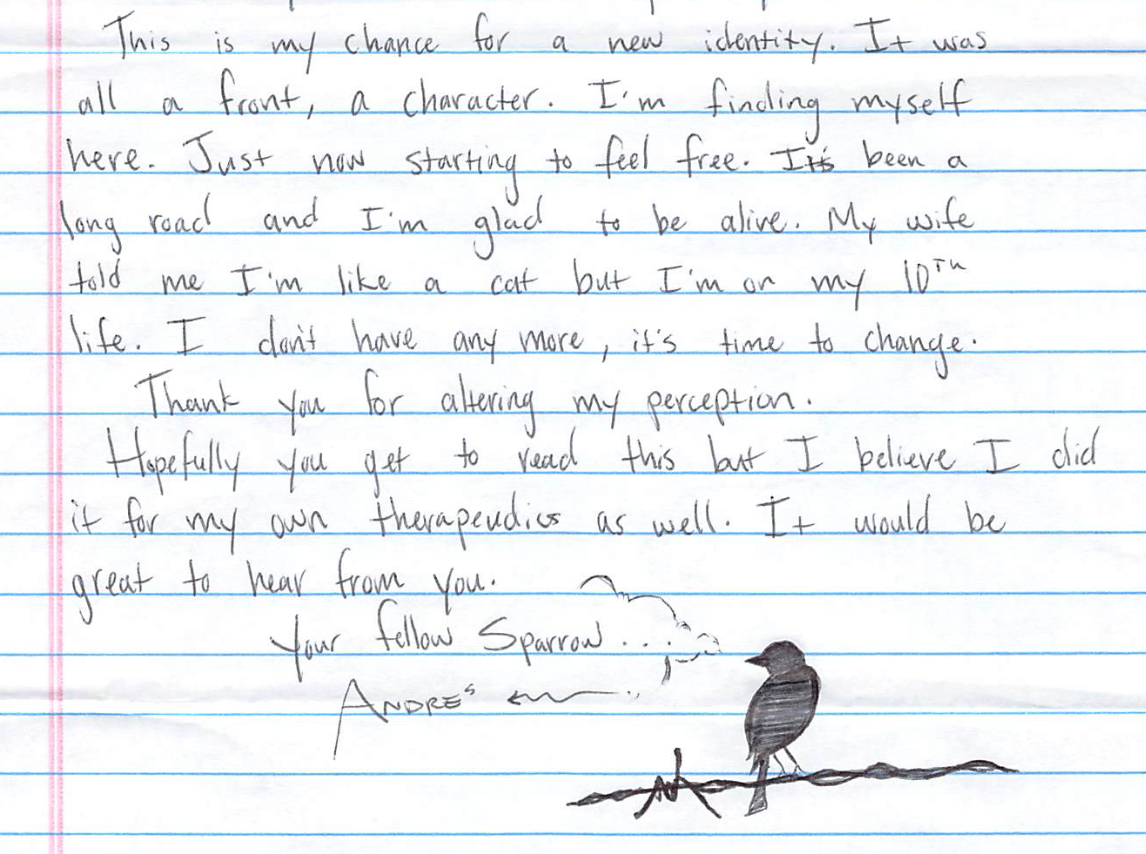 This is my chance for a new identity. It was
all a front, a character. I'm finding myself
here. Just now starting to feel free. It's been a
long road and I'm glad to be alive. My wife
told me I'm like a cat but I'm on my 10TH
life. I don't have any more, it's time to change.
Thank you for altering my perception.
Hopefully you get to read this but I believe I did
it for my own therapeudics as well. It would be
great to hear from you.
Your fellow Sparrow...
ANDRES